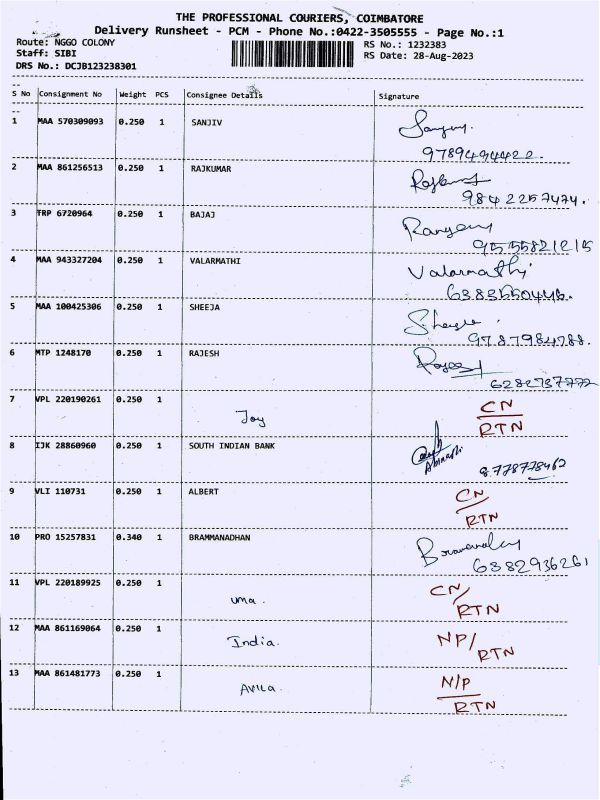 THE PROFESSIONAL COURIERS, COIMBATORE
Delivery Runsheet - PCM - Phone No.:0422-3505555 - Page No.:1
Route: NGGO COLONY RS No.: 1232383
Staff: SIBI RS Date: 28-Aug-2023
DRS No.: DCJB123238301
S No Consignment No Weight PCS Consignee Details Signature
1 MAA 570309093 0.250 1 SANJIV
9789494422.
2 MAA 861256513 0.250 1 RAJKUMAR
9842257474.
3 TRP 6720964 0.250 1 BAJAJ
9555821215
4 MAA 943327204 0.250 1 VALARMATHI Valarmathi
6383550445.
5 MAA 100425306 0.250 1 SHEEJA
9787984788.
6 MTP 1248170 0.250 1 RAJESH
6282737772
7 VPL 220190261 0.250 1 Joy CN
RTN
8 IJK 28860960 0.250 1 SOUTH INDIAN BANK
8778778462
9 VLI 110731 0.250 1 ALBERT CN
RTN
10 PRO 15257831 0.340 1 BRAMMANADHAN
6382936261
11 VPL 220189925 0.250 1 uma. CN/
RTN
12 MAA 861169064 0.250 1 India. NP/
RTN
13 MAA 861481773 0.250 1 Avila. N/P
RTN